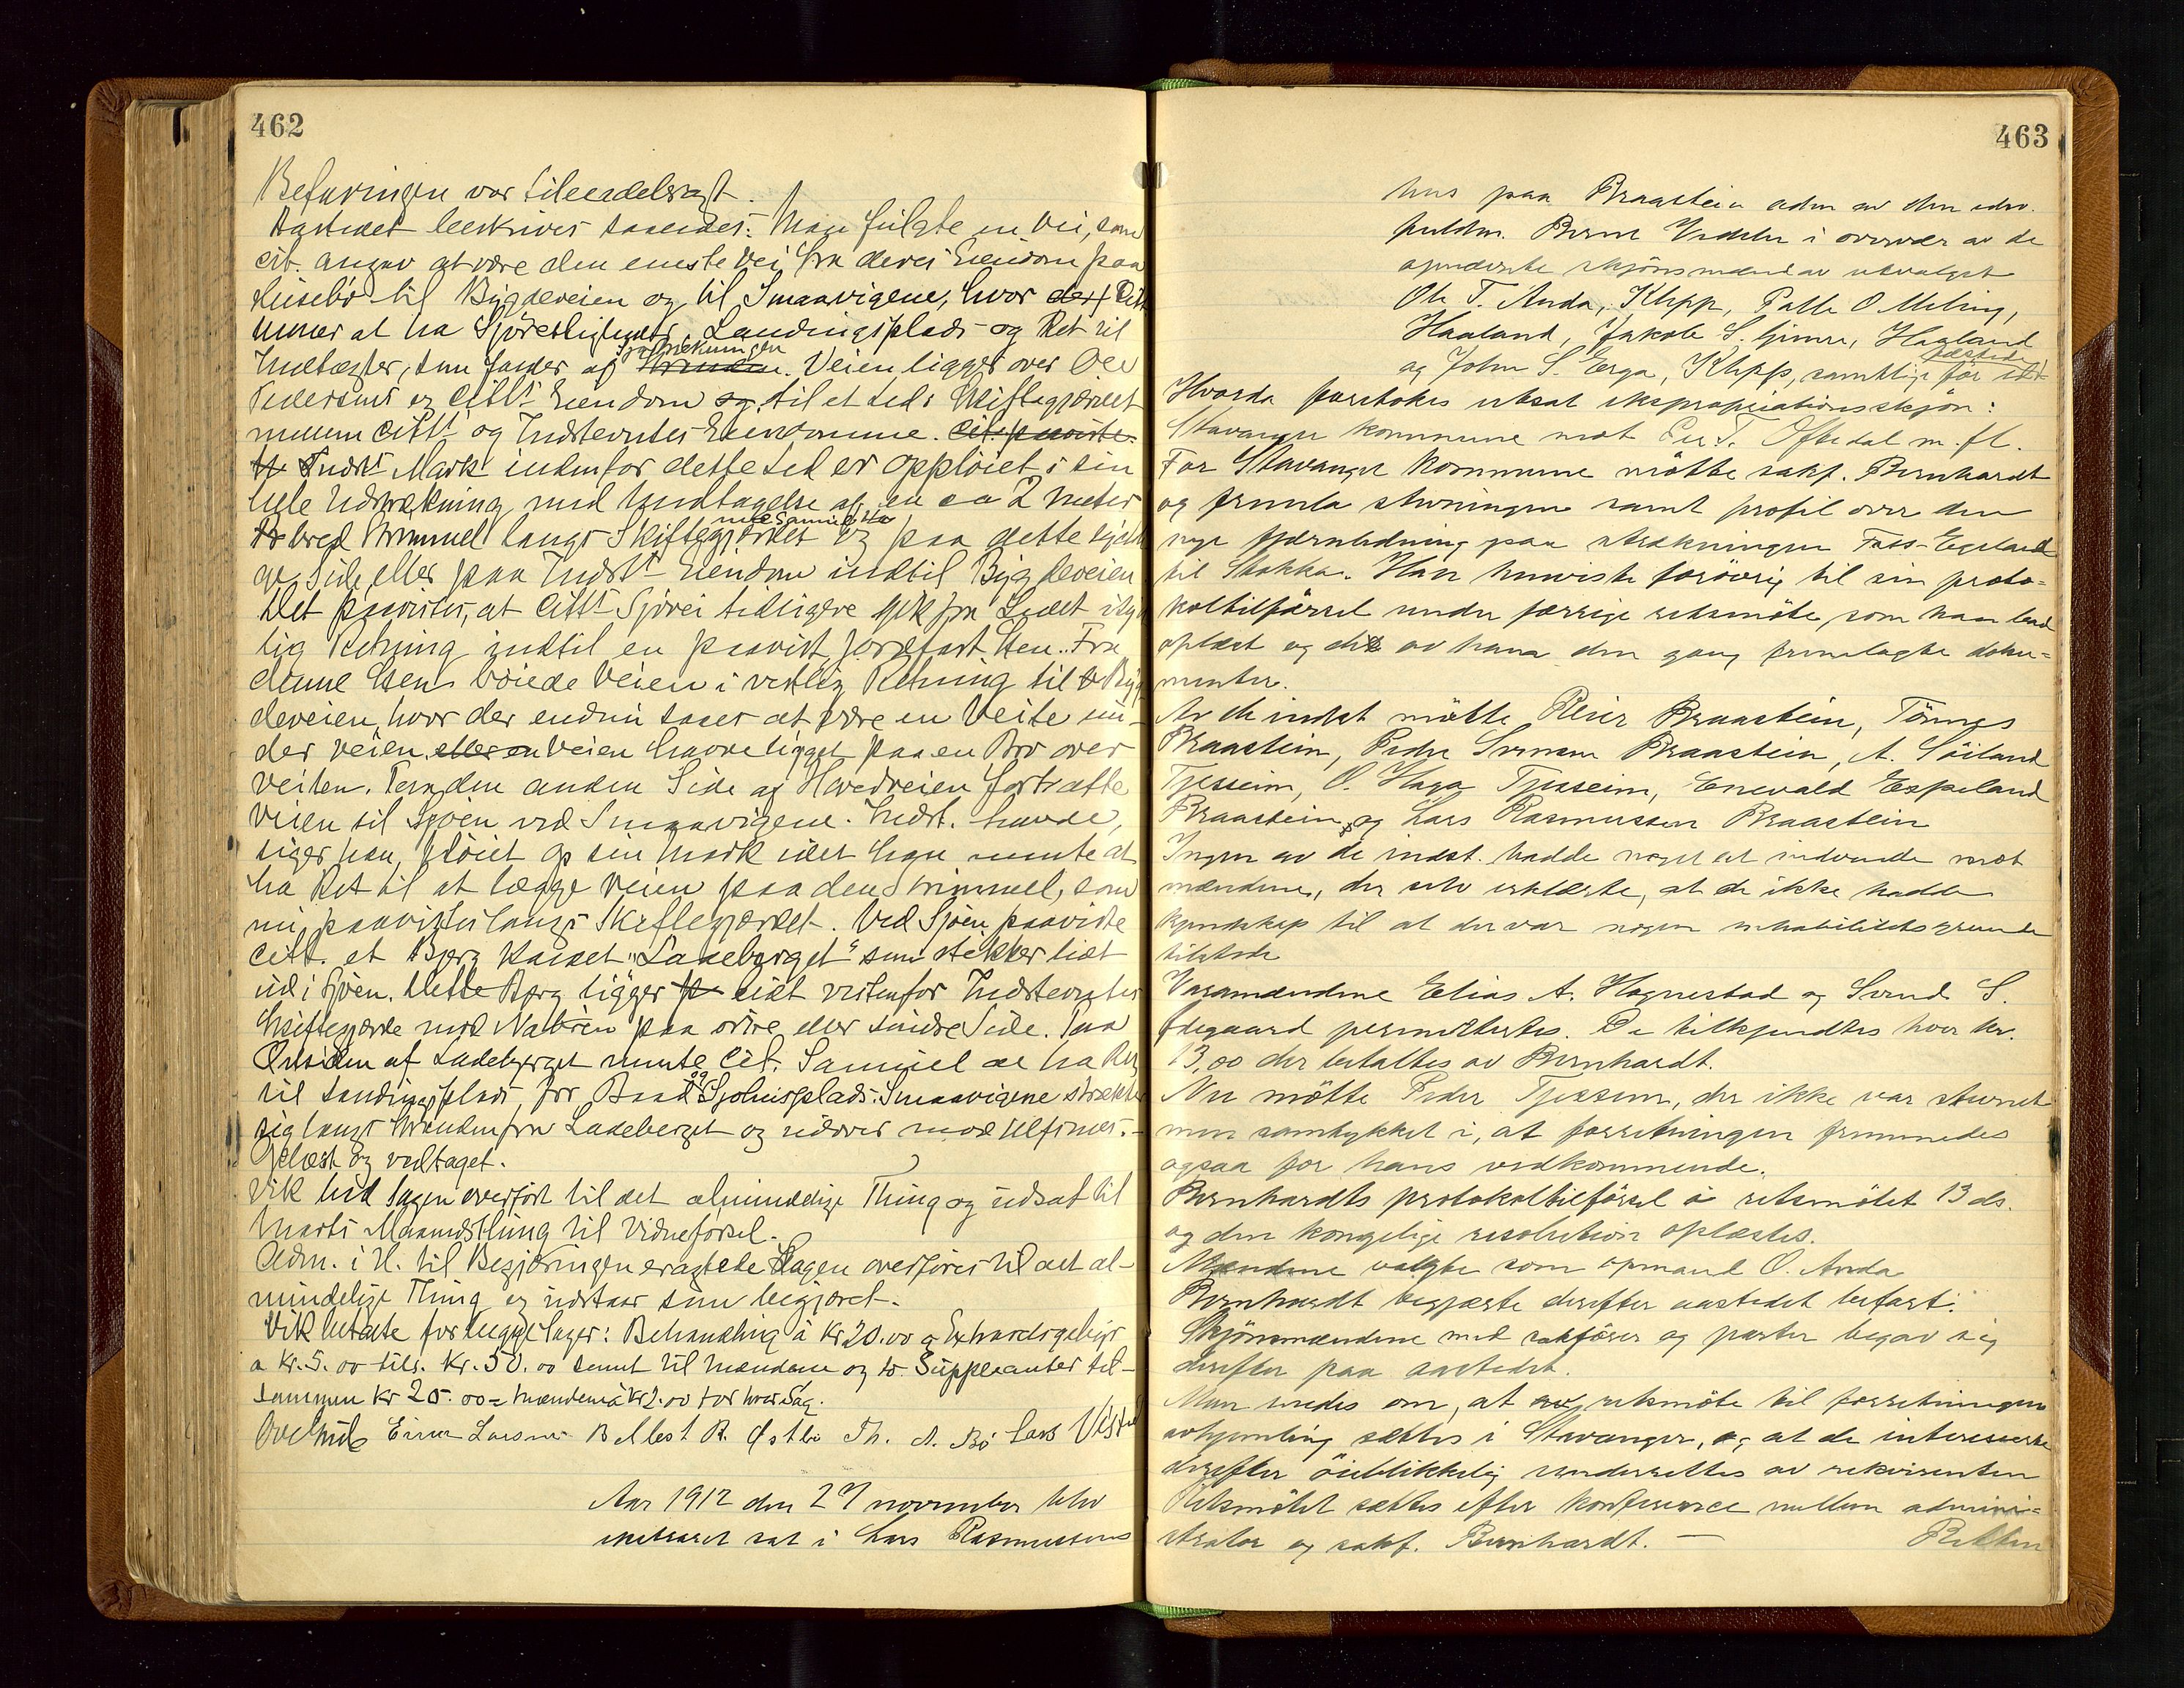 462
Befaringen var tilendebragt.
Aastedet beskrives saaledes: Man fulgte en Vei, som
cit. angav at være den eneste Vei fra deres Eiendom paa
Husebø til Bygdeveien og til Smaavigene, hvor de
mener at ha Sjørettigheder, Landingsplads og Ret til
Indtægter, som falder af Strækningen. Veien ligger over Ole
Pedersens og Cittes Eiendom til et Led i Skiftegjærdet
mellem Citts og Indstevntes Eiendomme.
Indsts Mark indenfor dette Led er opploiet i sin
hele Udstrækning med Undtagelse af en ca 2 Meter
bred Strimmel langs Skiftegjærdet og paa dette
Side eller paa Indsts Eiendom indtil Bygdeveien
Det paavistes, at Citts Sjøvei tidligere gik fra Ledet i
lig Retning indtil en paavist jordfast Sten. Fra
denne Sten bøiede Veien i vestlig Retning til Byg
deveien, hvor der endnu saaes at være en Veite un-
der veien. Veien havde ligget paa en Bro over
veiten. Paa den anden Side af Hovedveien fortsatte
Veien til Sjøen ved Smaavigene. Indst. havde,
siger han, pløiet op sin Mark idet han mente at
ha Ret til at lægge Veien paa den Strimmel, som
nu paavistes langs Skiftegjærdet. Ved Sjøen paaviste
Citt. et Berg kaldet "Ladeberget" som stikker lidt
ud i Sjøen. Dette Berg ligger lidt vestenfor Indstevntes
Skiftegjærde med Naboen paa østre eller søndre Side. Paa
Østsiden af Ladeberget mente Cit. Samuel at ha Ret
til Landingsplads for Baad og Sjøhusplads. Smaavigene strækker
sig langs Stranden fra Ladeberget og udover mod Ulfsnes.-
Oplæst og vedtaget.
Vik bad Sagen overført til det almindelige Thing og udsat til
Marts Maanedsthing til Vidneførsel.
Adm. i H. til Begjæringen eragtede Sagen overføres til det al-
mindelige Thing og udstaar som begjæret.
Vik betalte for begge Sager: Behandling à Kr 20.00 og Extraretsgebyr
a Kr. 5.00 tils. Kr. 50.00 samt til Mændene og to Suppleanter til-
sammen Kr 25.00 = Mændene à Kr 2.00 for hver Sag.
Einar Larsen B Mest R. Østbø Th. A. Bø Lars
Aar 1912 den 27 november blev
ekstraret sat i Lars Rasmussens
463
hus paa Braastein adm av den edsv.
fuldm. Berne Vedeler i overvær av de
opnævnte skjønsmænd av utvalget
Ole T. Anda, Klepp, Palle O Meling,
Haaland, Jakob S. Gimre, Haaland
og John S. Erga, Klepp, samtlige før
Hvorda foretokes utsat ekspropriationsskjøn:
Stavanger kommune mot T. Oftedal m. fl.
For Stavanger kommune møtte sakf. Bernhardt
og fremla stevningen samt profil over den
nye fjernledning paa strækningen Foss-Eegeland
til Stokka. Han henviste forøvrig til sin proto=
koltilførsel under forrige retsmøte, som han bad
oplæst og de av ham den gang fremlagte doku=
menter.
Av de indst møtte Peder Braastein, Tønnes
Braastein, Peder Svensen Braastein, A. Søiland
Tjesseim, O. Haga Tjesseim, Enevald Espeland
Braastein, og Lars Rasmussen Braastein
Ingen av de indst. hadde noget at indvende mot
mændene, der selv erklærte, at de ikke hadde
kjendskap til at der var nogen inhabilitetsgrunde
tilstede
Varamændene Elias A. Hognestad og Svend S.
Ødegaard permitertes. De tilkjendtes hver kr.
13,00 der betaltes av Bernhardt.
Nu møtte Peder Tjessem, der ikke var stevnet
men samtykket i, at forretningen fremmedes
ogsaa for hans vedkommende.
Bernhardts protokoltilførsel i retsmøtet 13 ds.
og den kongelige resolution oplæstes.
Mændene valgte som opmand O. Anda
Bernhardt begjærte derefter aastedet befart.
Skjønsmændene med sakfører og parter begav sig
derefter paa aastedet.
Man enedes om, at retsmøte til forretningens
avhjemling sættes i Stavanger, og at de interesserte
derefter øieblikkelig underrettes av rekvirenten
Retsmøtet sættes efter konferance mellem admini=
strator og sakf. Bernhardt. — Retten